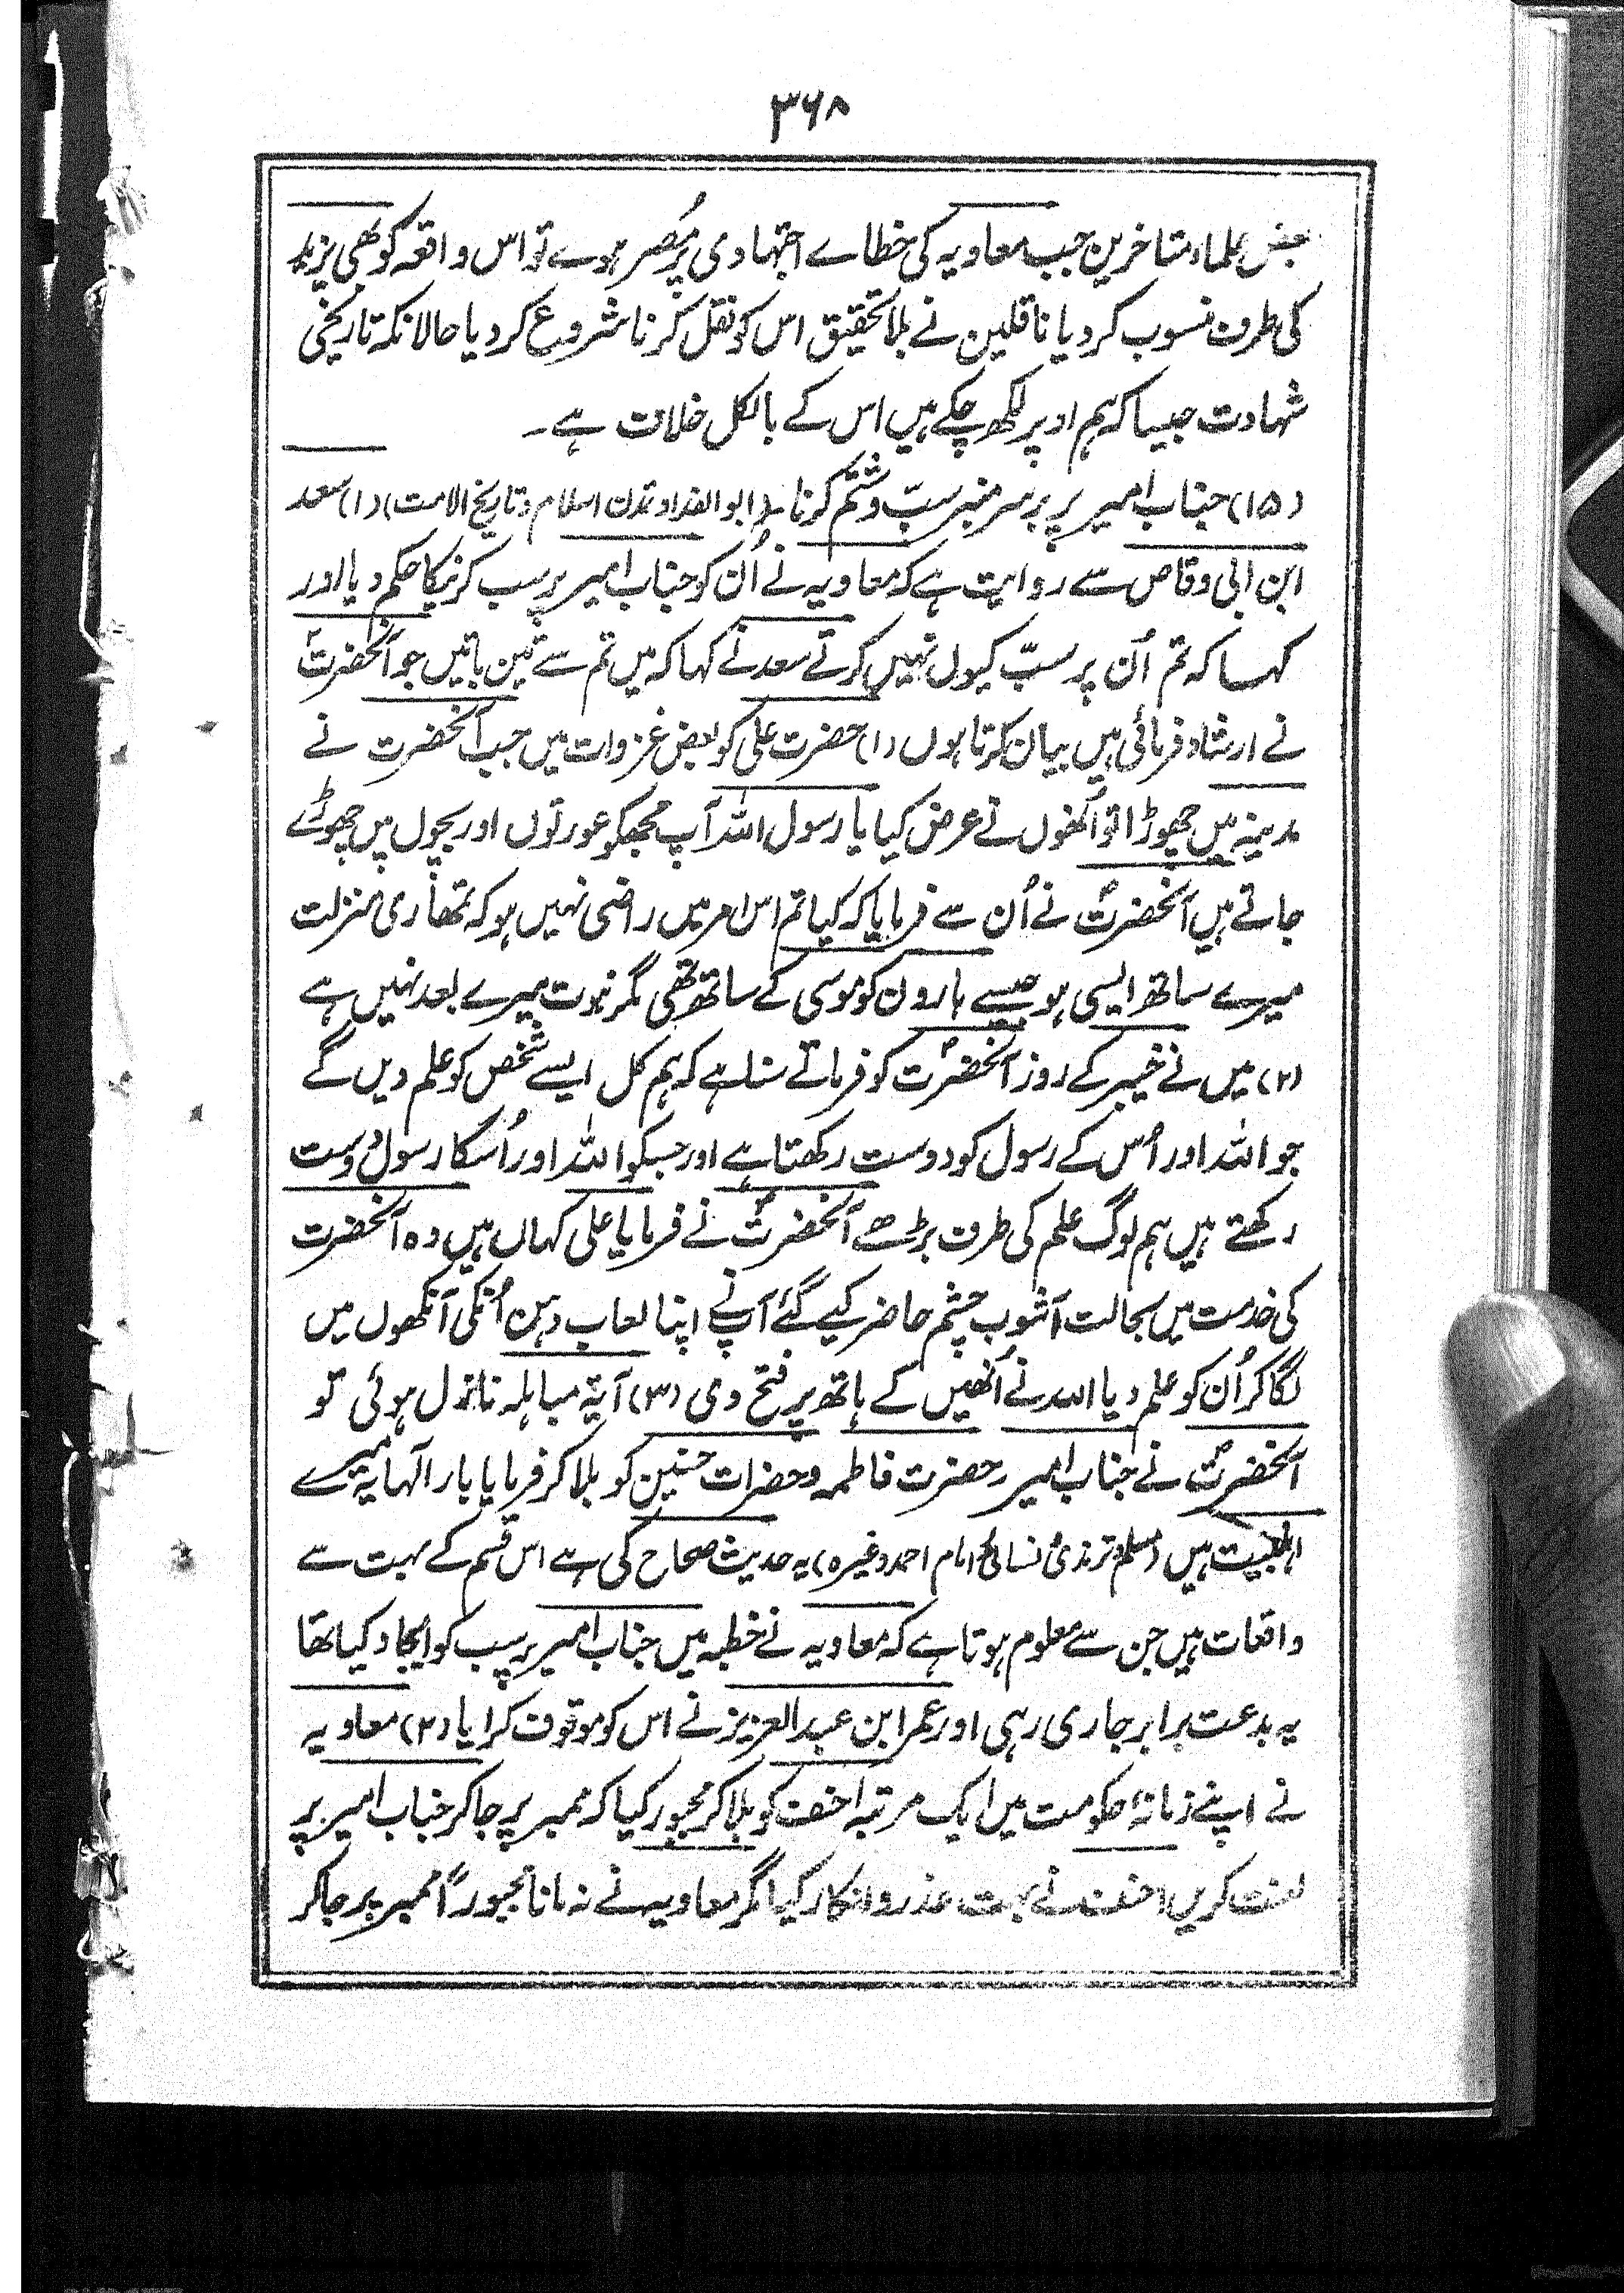 ۳۶۸
بعض علماء متاخرین جب معاویہ کی خطاے اجتہادی پر مُصر ہوے تو اس واقعہ کو بھی یزید
کی طرف منسوب کر دیا ناقلین نے بلا تحقیق اس کو نقل کرنا شروع کر دیا حالانکہ تاریخی
شہادت جیسا کہ ہم اوپر لکھ چکے ہیں اس کے بالکل خلاف ہے۔
(۱۵) جناب امیر پر برسر منبر سبّ و شتم کرنا۔ (ابو الفدا و تمدن اسلام و تاریخ الامت) (۱) سعد
ابن ابی وقاص سے روایت ہے کہ معاویہ نے اُن کو جناب امیر پر سب کرنیکا حکم دیا اور
کہا کہ تم اُن پر سبّ کیوں نہیں کرتے سعد نے کہا کہ میں تم سے تین باتیں جو آنحضرتؐ
نے ارشاد فرمائی ہیں بیان کرتا ہوں (۱) حضرت علی کو بعض غزوات میں جب آنحضرت نے
مدینہ میں چھوڑا تو اُنھوں نے عرض کیا یا رسول اللہ آپ مجھکو عورتوں اور بچوں میں چھوڑے
جاتے ہیں آنحضرتؐ نے اُن سے فرمایا کہ کیا تم اس امر میں راضی نہیں ہو کہ تمھاری منزلت
میرے ساتھ ایسی ہو جیسے ہارون کو موسی کے ساتھ تھی مگر نبوت میرے بعد نہیں ہے
(۲) میں نے خیبر کے روز آنحضرتؐ کو فرماتے سنا ہے کہ ہم کل ایسے شخص کو علم دیں گے
جو اللہ اور اُس کے رسول کو دوست رکھتا ہے اور جسکو اللہ اور اُسکا رسول دوست
رکھتے ہیں ہم لوگ علم کی طرف بڑھے آنحضرتؐ نے فرمایا علی کہاں ہیں وہ آنحضرت
کی خدمت میں بحالت آشوب چشم حاضر کیے گئے آپ نے اپنا لعاب دہن اُنکی آنکھوں میں
لگا کر اُن کو علم دیا اللہ نے اُنھیں کے ہاتھ پر فتح دی (۳) آیۃ مباہلہ نازل ہوئی تو
آنحضرتؐ نے جناب امیر حضرت فاطمہ و حضرات حسنین کو بلا کر فرمایا بار الٰہا یہ میرے
اہلبیت ہیں (مسلم و ترمذی و نسائی و امام احمد وغیرہ) یہ حدیث صحاح کی ہے اس قسم کے بہت سے
واقعات ہیں جن سے معلوم ہوتا ہے کہ معاویہ نے خطبہ میں جناب امیر پر سب کو ایجاد کیا تھا
یہ بدعت برابر جاری رہی اور عمر ابن عبد العزیز نے اس کو موقوف کرایا (۲) معاویہ
نے اپنے زمانۂ حکومت میں ایک مرتبہ احنف کو بلا کر مجبور کیا کہ ممبر پر جا کر جناب امیر پر
لعنت کریں احنف نے بہت عذر و انکار کیا مگر معاویہ نے نہ مانا مجبوراً ممبر پر جا کر